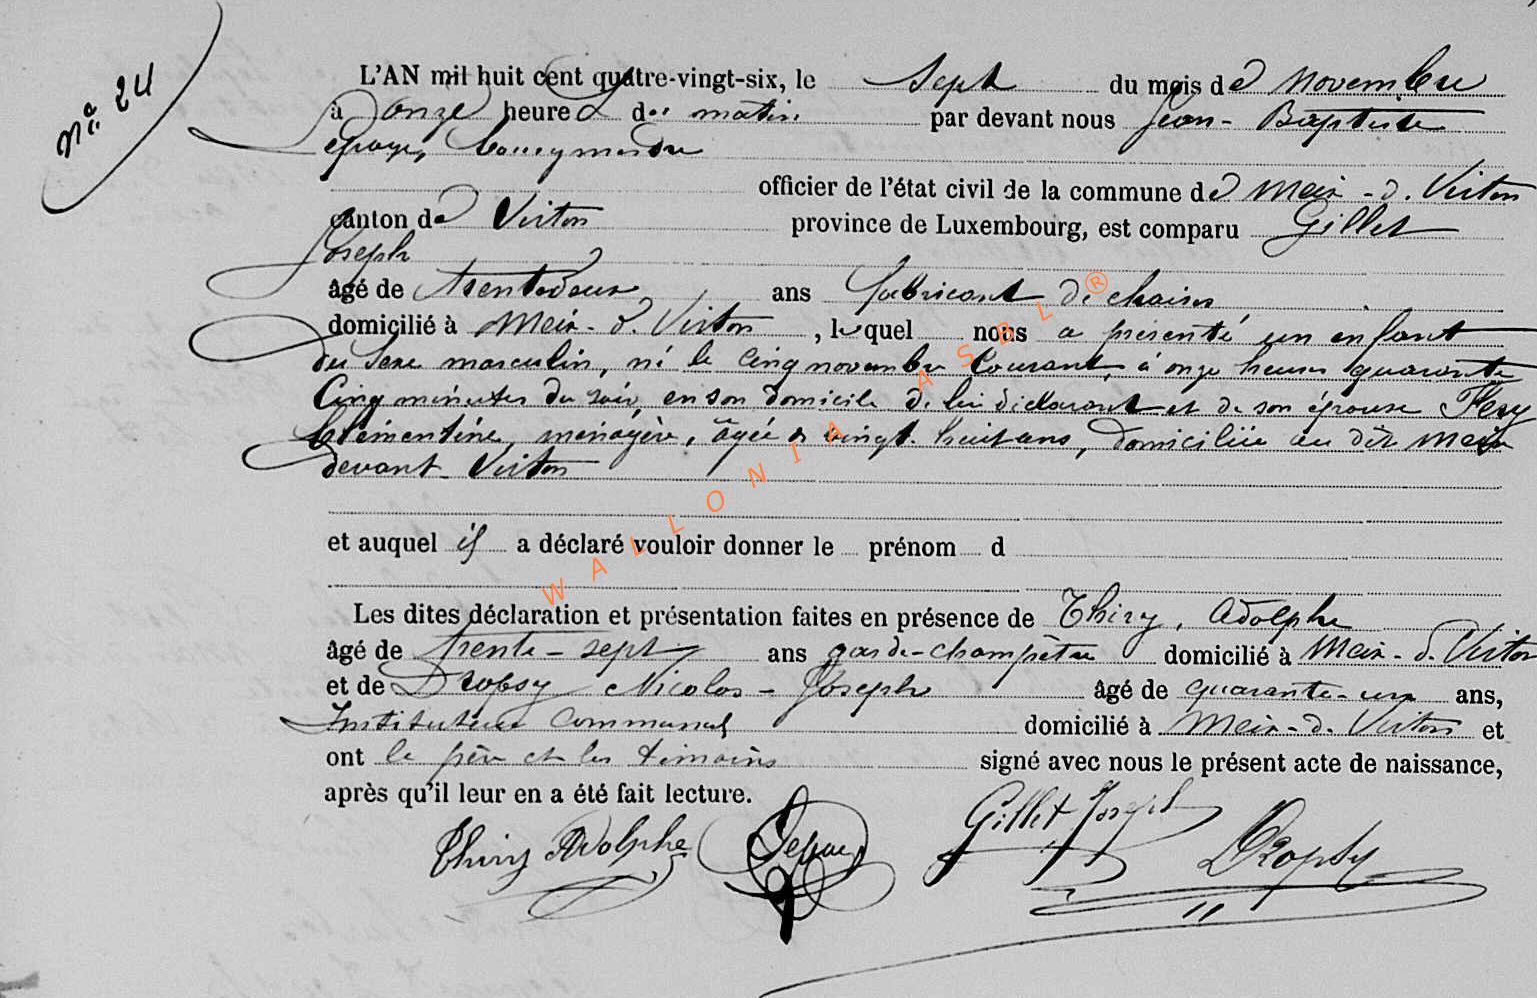 N° 24
L'AN mil huit cent quatre-vingt-six, le sept du mois de novembre
à onze heures du matin par devant nous Jean-Baptiste
Lepage, bourgmestre
officier de l'état civil de la commune de Meix-d. Virton
canton de Virton province de Luxembourg, est comparu Gillet
Joseph
âgé de trente deux ans fabricant de chaises
domicilié à Meix-d. Virton, lequel nous a présenté un enfant
du sexe masculin, né le cinq novembre courant, à onze heures quarante
cinq minutes du soir, en son domicile de lui déclarant et de son épouse Fery
Clémentine, ménagère, âgée de vingt-huit ans, domiciliée au dit Meix
devant Virton
et auquel il a déclaré vouloir donner le prénom d
Les dites déclaration et présentation faites en présence de Thiry, Adolphe
âgé de trente-sept ans garde-champêtre domicilié à Meix-d. Virton
et de Dropsy Nicolas-Joseph âgé de quarante-un ans,
Instituteur communal domicilié à Meix-d. Virton et
ont le père et les témoins signé avec nous le présent acte de naissance,
après qu'il leur en a été fait lecture.
Thiry Adolphe Lepage Gillet Joseph Dropsy
WALLONIA ASBL ®